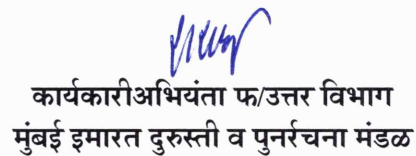 कार्यकारीअभियंता फ/उत्तर विभाग
मुंबई इमारत दुरुस्ती व पुनर्रचना मंडळ